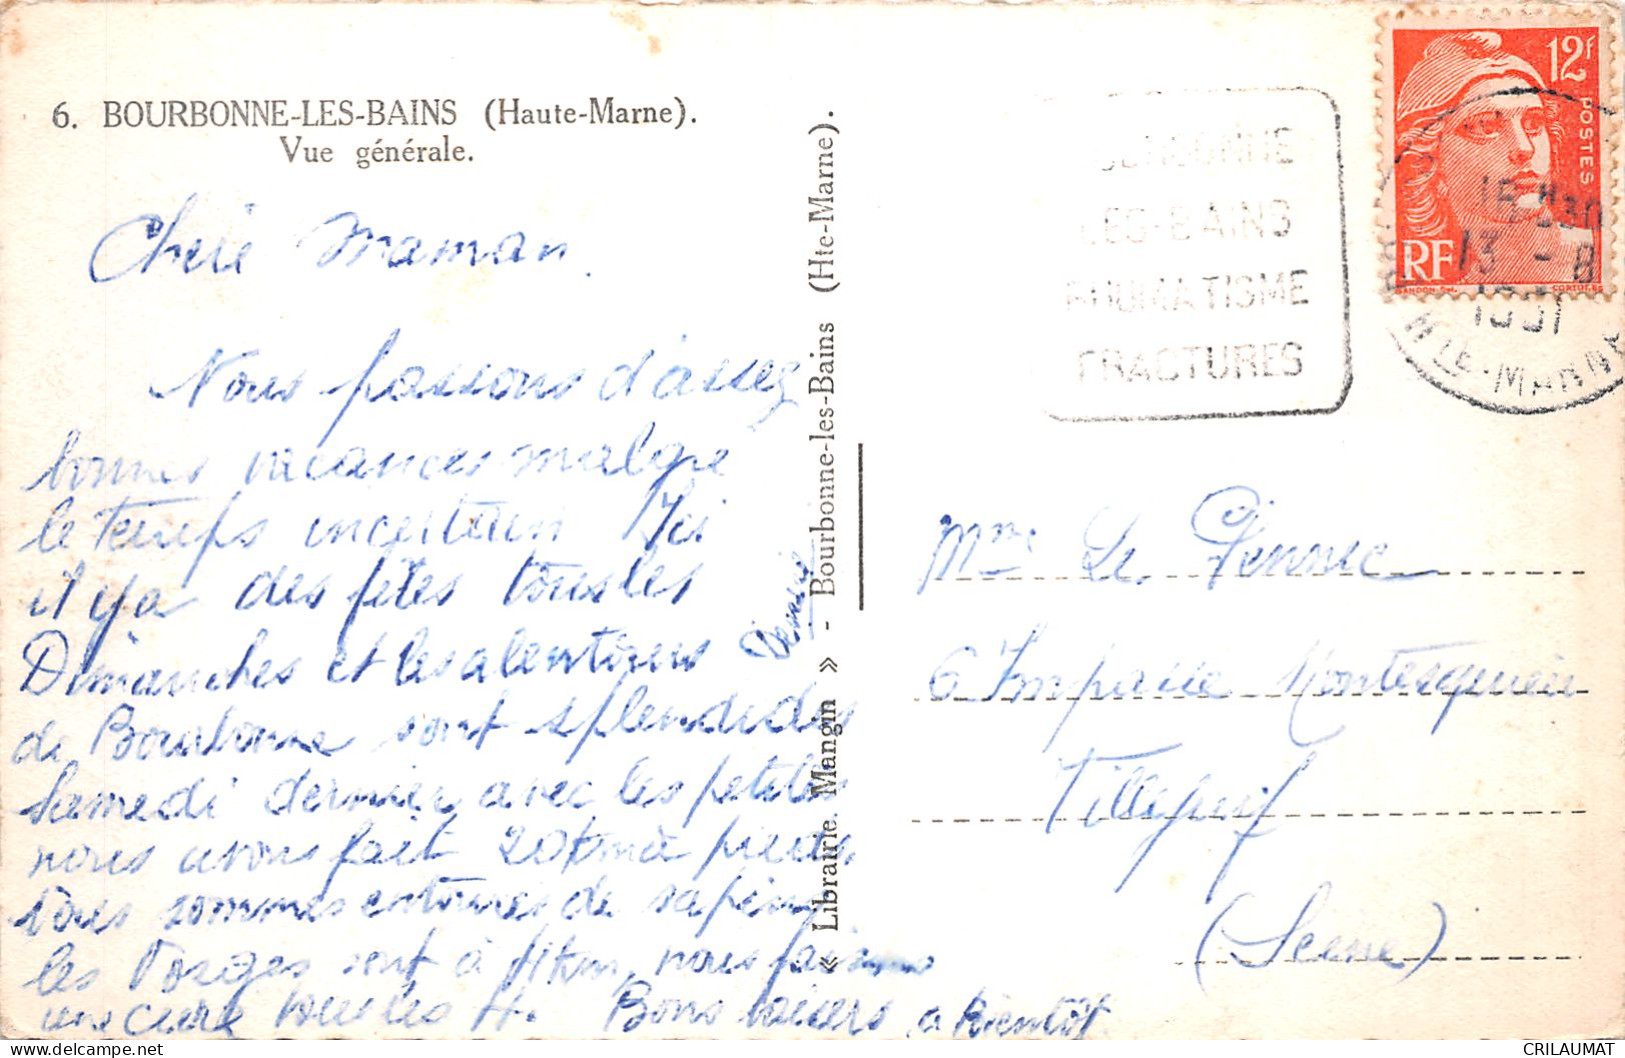 6. BOURBONNE-LES-BAINS (Haute-Marne).
Vue générale.
Chere Maman.
Nous passons d'assez
bonnes vacances malgre
le temps incertain Ici
il y a des fêtes tous les
Dimanches et les alentours
de Bourbonne sont splendides
Samedi dernier avec les petites
nous avons fait 20 km à pieds,
sommes entourés de sapins
les Vosges sont à km, nous faisons
une cure tous les 4. Bons baisers a bientôt
Denise
« Librairie Mangin » - Bourbonne-les-Bains (Hte-Marne).
BOURBONNE
LES-BAINS
RHUMATISME
FRACTURES
12f
POSTES
RF
GANDON
CORTOT
13 - 8
1951
HTE-MARNE
Mme Le Pennec
6 Impasse Montesquieu
Villejuif
(Seine)
CRILAUMAT